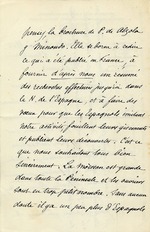 la brochure de P. de Alzola
y Minondo. Elle se borne à redire
ce qui a été publié en France, à
fournir d'après nous un résumé
des recherches effectuées jusqu'ici dans
le N. de l'Espagne, et à faire des
vœux pour que les Espagnols imitent
notre activité, fouillent leurs gisements
et publient leurs découvertes. C'est ce
que nous souhaitons tous bien
sincèrement. La moisson est grande
dans toute la Péninsule, et les ouvriers
sont en trop petit nombre. Sans aucun
doute il y a un peu plus d'Espagnols